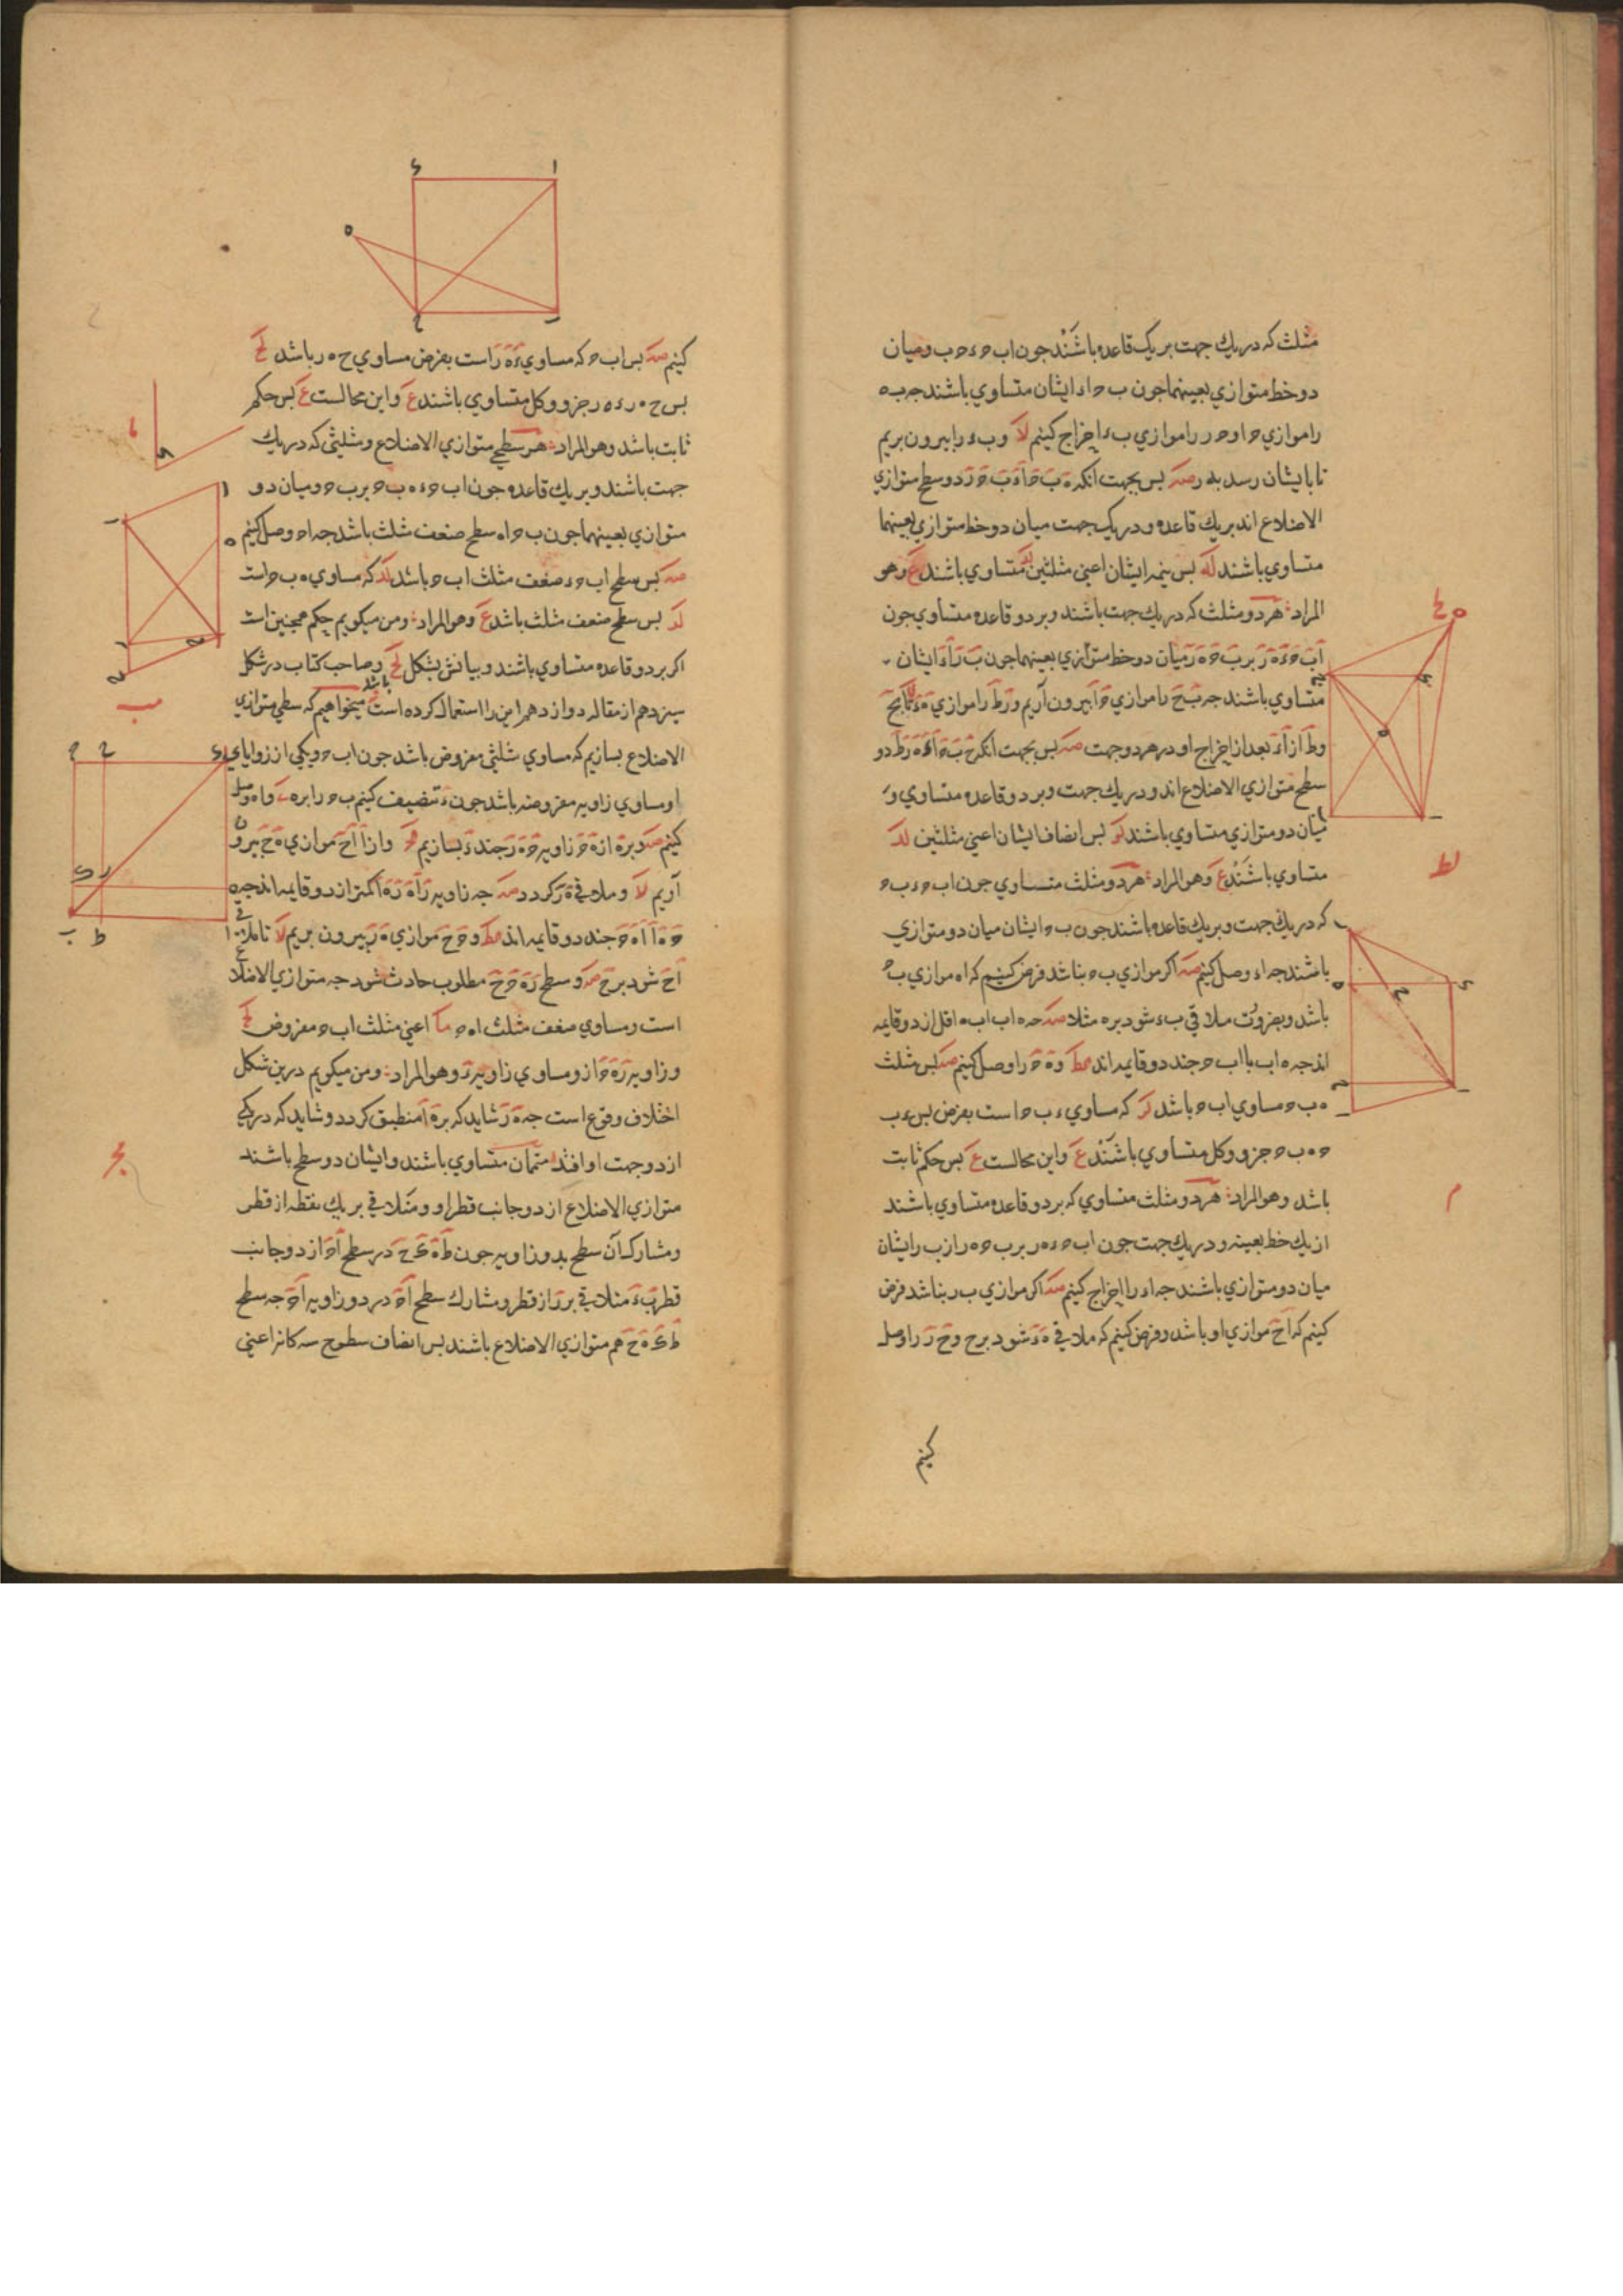 مثلث که در یك جهت بر یک قاعده باشند جون اب ح ء ح ب و میان
دو خط متوازي بعینهما جون ب ح اء ایشان متساوي باشند جه ب ه
را موازي ح ا و ح ر را موازي ب ء اخراج کینم لا و ب ء را بیرون بریم
تا بایشان رسد به ر صه بس بجهت انکه ه ب ح ا ء ب ح ر دو سطح متوازي
الاضلاع اند بر یك قاعده و در یک جهت میان دو خط متوازي بعینهما
متساوي باشند له بس نیمه ایشان اعني مثلثین لد متساوي باشند ع وهو
المراد هر دو مثلث که در یك جهت باشند و بر دو قاعده متساوي جون
اب ح ء ه ر بر ب ح ه ر میان دو خط متوازي بعینهما جون ب ر ا ء ایشان
متساوي باشند جه ب ح را موازي ح ا بیرون آریم و ر ط را موازي ه ء تا بح
و ط از ا ء بعد از اخراج او در هر دو جهت صه بس بجهت انکه ح ب ح ا ء ه ر ط دو
سطح متوازي الاضلاع اند و در یك جهت و بر دو قاعده متساوي و
میان دو متوازي متساوي باشند لو بس انصاف ایشان اعني مثلثین لد
متساوي باشند ع وهو المراد هر دو مثلث متساوي جون اب ح ء ب ح
که در یك جهت و بر یك قاعده باشند جون ب ح ایشان میان دو متوازي
باشند جه اء وصل کینم صه اکر موازي ب ح نباشد فرض کینم که اه موازي ب ح
باشد و بضرورت ملاقي ب ء شود بر ه مثلا صه جه ه اب اب ه اقل از دو قایمه
اند جه ه اب با اب ح جند دو قایمه اند کط و ه ح را وصل کینم صه بس مثلث
ه ب ح مساوي اب ح باشد لز که مساوي ء ب ح است بفرض بس ء ب
ح ه ب ح جزو و کل متساوي باشند ع و این محالست ع بس حکم ثابت
باشد وهو المراد هر دو مثلث متساوي که بر دو قاعده متساوي باشند
از یك خط بعینه و در یك جهت جون اب ح ء ه ر بر ب ح ه ر از ب ر ایشان
میان دو متوازي باشند جه اء را اخراج کینم صه اکر موازي ب ر نباشد فرض
کینم که ا ح موازي او باشد و فرض کینم که ملاقي ه ء شود بر ح و ح ر را وصل
کینم
کینم صه بس اب ح که مساوي ء ه ر است بفرض مساوي ح ه ر باشد لح
بس ح ه ر ء ه ر جزو و کل متساوي باشند ع و این محالست ع بس حکم
ثابت باشد وهو المراد هر سطحي متوازي الاضلاع و مثلثي که در یك
جهت باشند و بر یك قاعده جون اب ح ء ه ب ح بر ب ح و میان دو
متوازي بعینهما جون ب ح اه سطح ضعف مثلث باشد جه اح وصل کینم
صه بس سطح اب ح ء ضعف مثلث اب ح باشد لد که مساوي ه ب ح است
لز بس سطح ضعف مثلث باشد ع وهو المراد و من میکویم حکم همچنین است
اکر بر دو قاعده متساوي باشند و بیانش بشکل لح باشد و صاحب کتاب در شکل
سیزدهم از مقاله دوازدهم این را استعمال کرده است میخواهیم که سطحي متوازي
الاضلاع بسازیم که مساوي مثلثي مفروض باشد جون اب ح و یکي از زوایاي
او مساوي زاویه مفروضه باشد جون ء تنصیف کینم ب ح را بر ه ي و اه وصل
کینم صه و بر ه از ه ح زاویه ح ه ر جند ء بسازیم کج و از ا ا ح موازي ه ح بیرون
آریم لا و ملاقي ه ر کردد صه جه زاویه ر ا ه ر ه ا کمتر از دو قایمه اند جه
ح ه ا ا ه ح جند دو قایمه اند کط و ح ح موازي ه ر بیرون بریم لا تا ملاقي
ا ح شود بر ح صه و سطح ر ه ح ح مطلوب حادث شود جه متوازي الاضلاع
است و مساوي ضعف مثلث ا ه ح ما اعني مثلث اب ح مفروض لح
و زاویه ر ه ح از و مساوي زاویه ء وهو المراد و من میکویم درین شکل
اختلاف وقوع است جه ه ر شاید که بر ه ا منطبق کردد و شاید که در یکي
از دو جهت او افتد متممان متساوي باشند و ایشان دو سطح باشند
متوازي الاضلاع از دو جانب قطر او و متلاقي بر یك نقطه از قطر
و مشارك آن سطح بدو زاویه جون ط ه ک ح در سطح ا ح از دو جانب
قطر ب ء متلاقي بر ر از قطر و مشارك سطح ا ح در دو زاویه ا ح جه سطح
ط ک ه ح هم متوازي الاضلاع باشند بس انصاف سطوح سه کانه اعني